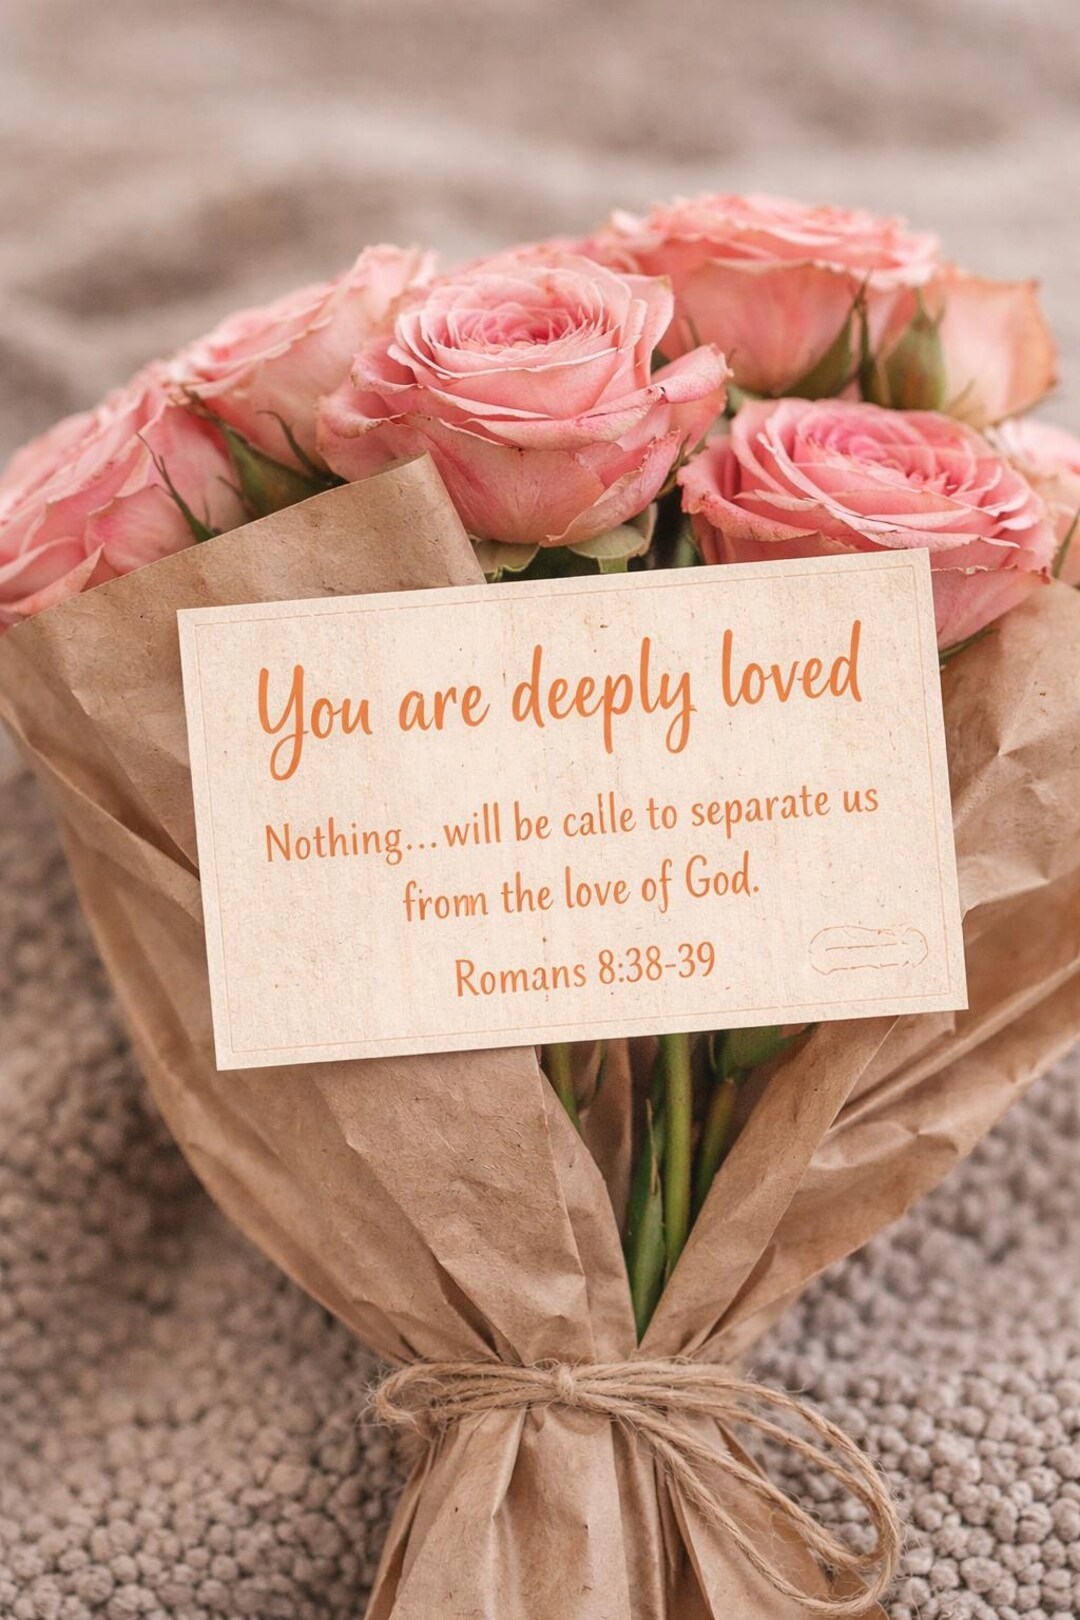 You are deeply loved
Nothing...will be calle to separate us
from the love of God.
Romans 8:38-39